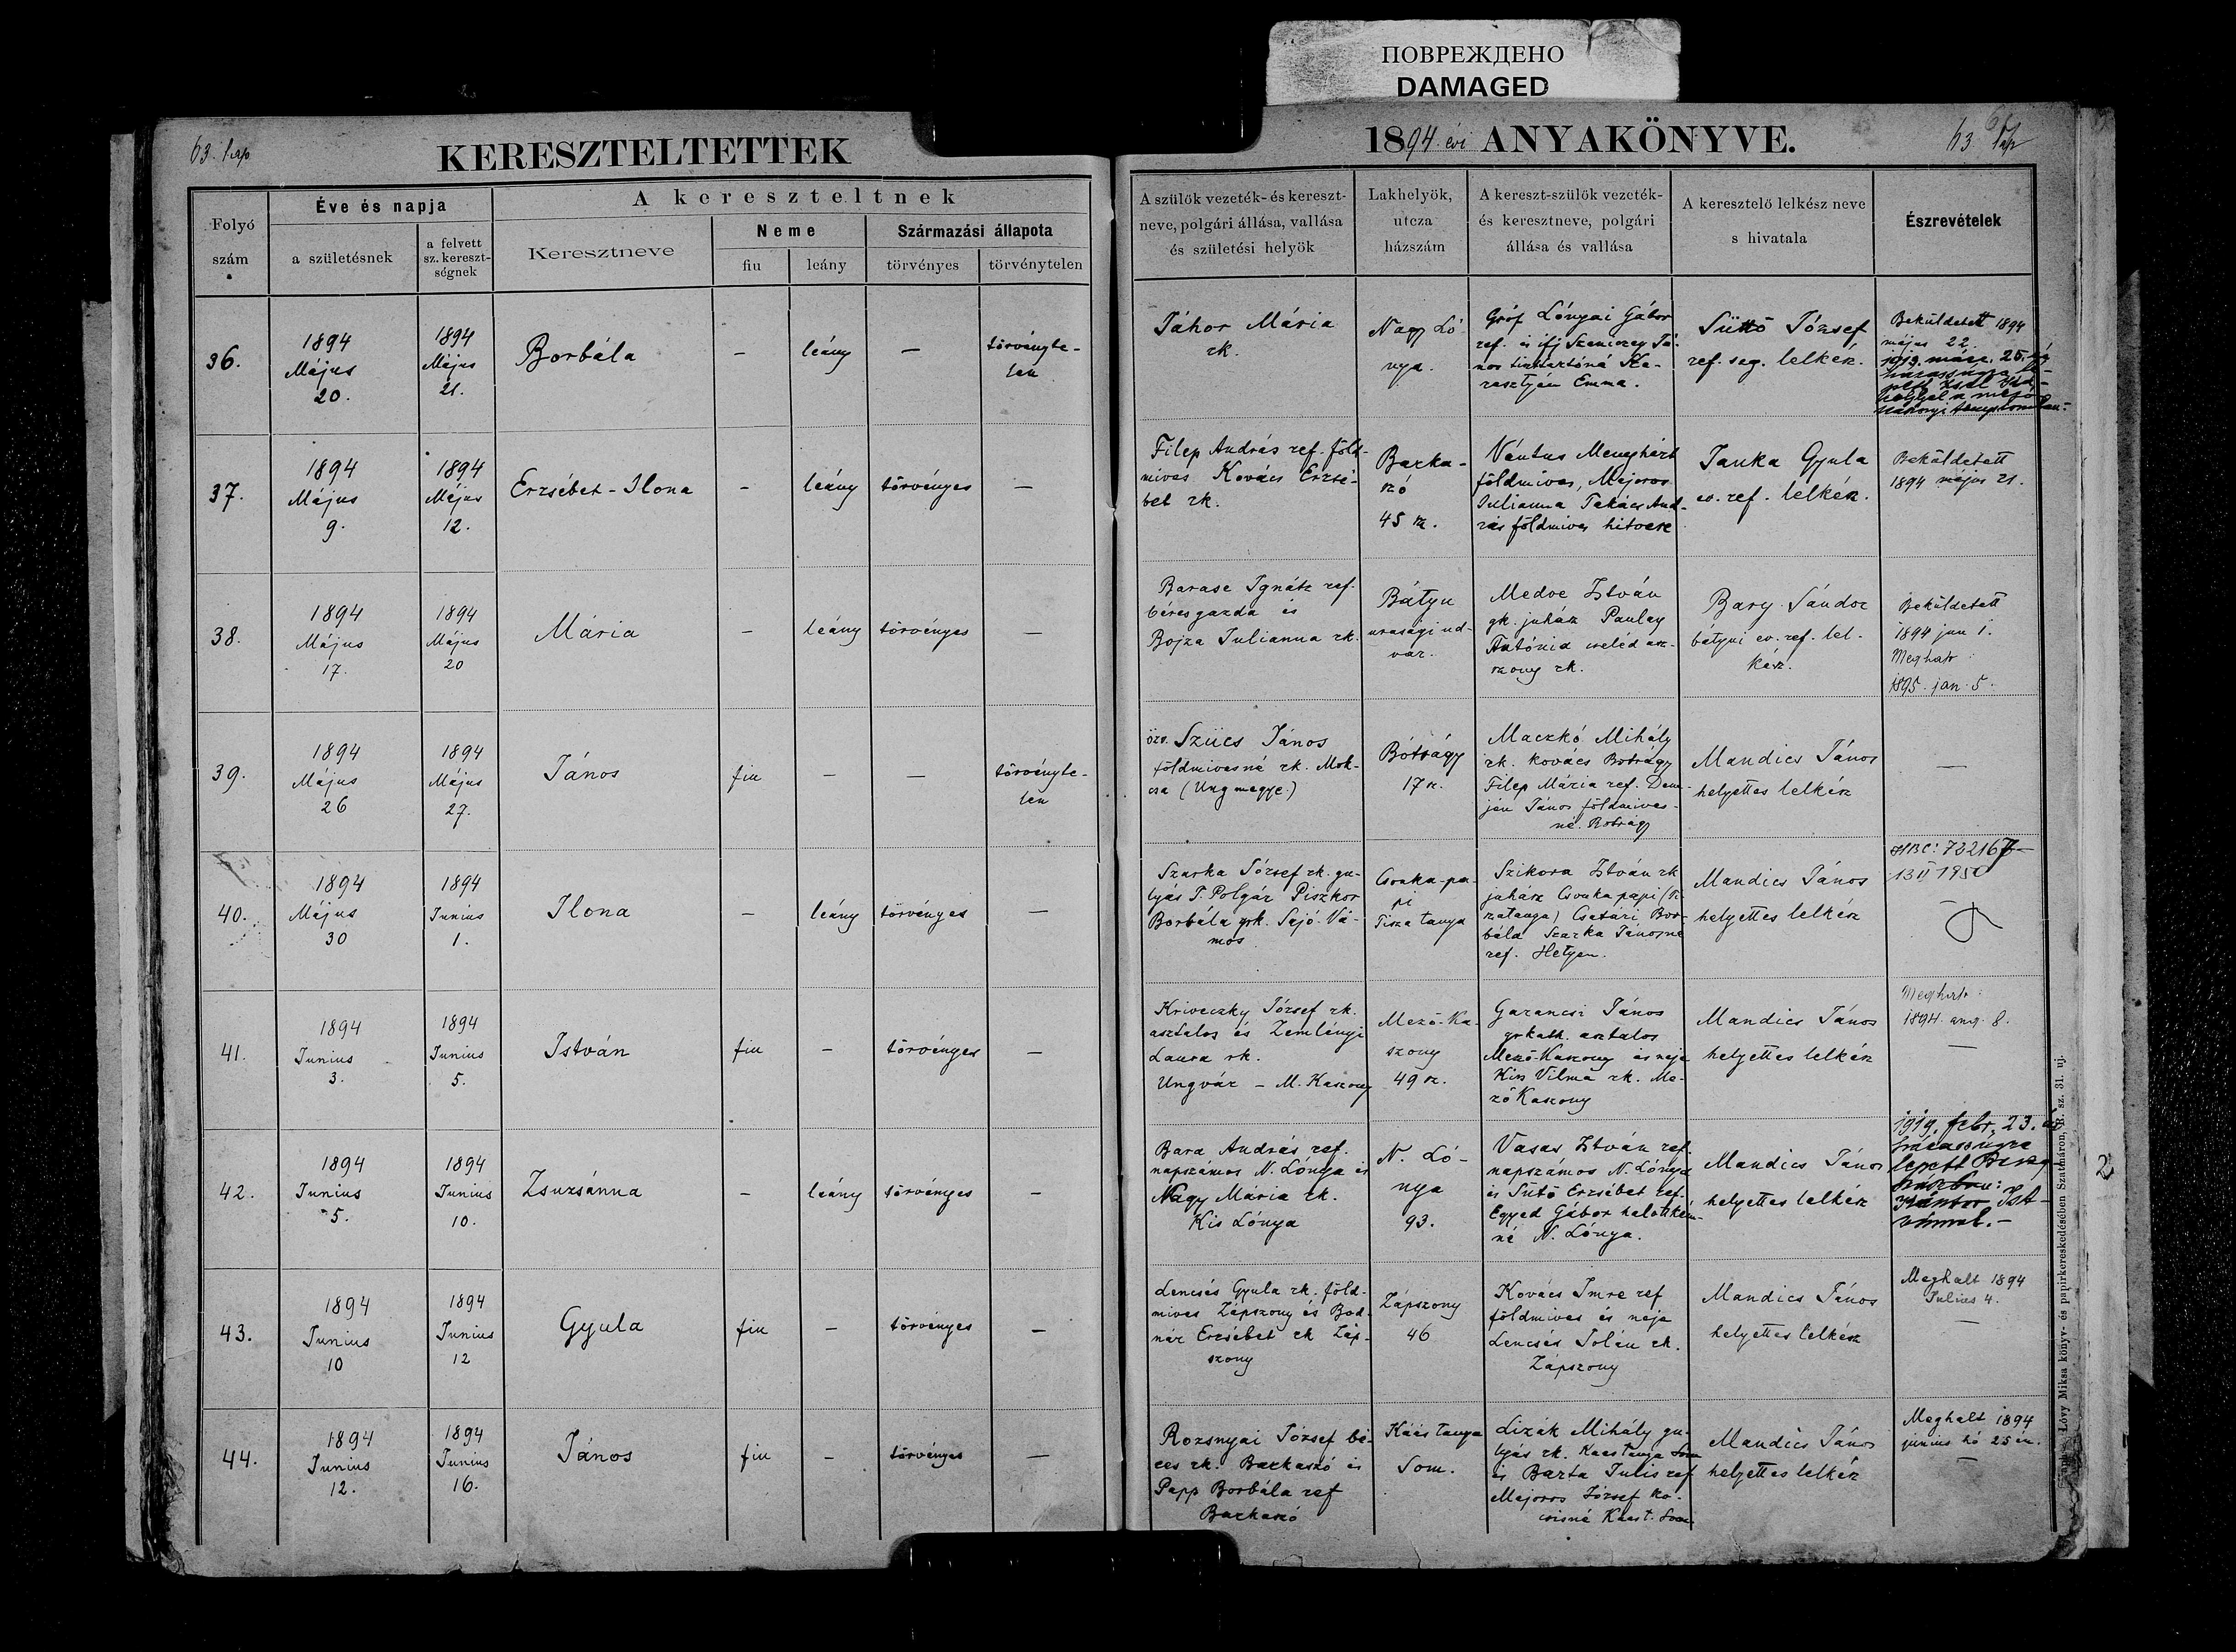 ПОВРЕЖДЕНО
DAMAGED
63. lap
KERESZTELTETTEK
1894. évi ANYAKÖNYVE.
63 lap
Folyó
szám
Éve és napja
a születésnek
a felvett
sz. kereszt-
ségnek
A kereszteltnek
Keresztneve
Neme
fiu
leány
Származási állapota
törvényes
törvénytelen
A szülök vezeték- és kereszt-
neve, polgári állása, vallása
és születési helyök
Lakhelyök,
utcza
házszám
A kereszt-szülök vezeték-
és keresztneve, polgári
állása és vallása
A keresztelő lelkész neve
s hivatala
Észrevételek
36.
1894
Május
20.
1894
Május
21.
Borbála
–
leány
–
törvényte-
len
Táhor Mária
rk.
Nagy Ló-
nya.
Gróf Lónyai Gábor
ref. és ifj Szeniczey Já-
nos tiszttartóné Ka-
rasztyán Emma.
Sütő József
ref. seg. lelkész.
Beküldetett 1894
május 22.
1919. márc. 25.
37.
1894
Május
9.
1894
Május
12.
Erzsébet-Ilona
–
leány
törvényes
–
Filep András ref. föld-
mives Kovács Erzsé-
bet rk.
Barka-
szó
45 sz.
Vántus Menyhért
földmives, Majoros
Julianna Takács And-
rás földmives hitvese
Janka Gyula
ev. ref. lelkész.
Beküldetett
1894 május 21.
38.
1894
Május
17.
1894
Május
20
Mária
–
leány
törvényes
–
Barase Ignátz ref.
béresgazda és
Bojza Julianna rk.
Bátyu
urasági ud-
var.
Medve István
gk. juhász Paulay
Antónia cseléd asz-
szony rk.
Bary Sándor
bátyui ev. ref. lel-
kész.
Beküldetett
1894 jun 1.
Meghalt
1895. jan. 5.
39.
1894
Május
26
1894
Május
27.
János
fiu
–
–
törvényte-
len
özv. Szücs János
földmivesné rk. Mok-
csa (Ung megye)
Bótrágy
17 sz.
Maczkó Mihály
rk. kovács Botrágy
Filep Mária ref. Dem-
jén János földmives-
né. Botrágy
Mandics János
helyettes lelkész
–
40.
1894
Május
30
1894
Junius
1.
Ilona
–
leány
törvényes
–
Szarka József rk. gu-
lyás T. Polgár Piszkor
Borbála grk. Sajó-Vá-
mos
Csonka-pa-
pi
Tisza tanya
Szikora István rk
juhász Csonkapapi (Ti-
szatanya) Csatári Bor-
bála Szarka Jánosné
ref. Hetyen.
Mandics János
helyettes lelkész
13 II 1950
41.
1894
Junius
3.
1894
Junius
5.
István
fiu
–
törvényes
–
Kriveczky József rk.
asztalos és Zemlényi
Laura rk.
Ungvár – M. Kaszony
Mező-Ka-
szony
49 sz.
Garancsi János
grkath. asztalos
Mező-Kaszony és neje
Kiss Vilma rk. Me-
ző Kaszony
Mandics János
helyettes lelkész
Meghalt
1894. aug. 8.
–
42.
1894
Junius
5.
1894
Junius
10.
Zsuzsánna
–
leány
törvényes
–
Bara András ref.
napszámos N. Lónya és
Nagy Mária rk.
Kis Lónya
N. Ló-
nya
93.
Vasas István ref.
napszámos N. Lónya
és Sütő Erzsébet ref.
Egyed Gábor halottkém-
né N. Lónya.
Mandics János
helyettes lelkész
1919. febr. 23. án
házasságra
lépett
Sántor Ist-
vánnal. –
43.
1894
Junius
10
1894
Junius
12
Gyula
fiu
–
törvényes
–
Lencsés Gyula rk. föld-
mives Zápszony és Bod-
nár Erzsébet rk Záp-
szony
Zápszony
46
Kovács Imre ref
földmives és neje
Lencsés Jolán rk.
Zápszony
Mandics János
helyettes lelkész
Meghalt 1894
Julius 4.
–
44.
1894
Junius
12.
1894
Junius
16.
János
fiu
–
törvényes
–
Rozsnyai József bé-
res rk. Barkaszó és
Papp Borbála ref
Barkaszó
Káás tanya
Som.
Lizák Mihály gu-
lyás rk. Kaas tanya Som
és Barta Julis ref
Majoros József ko-
csisné Kaas t. Som
Mandics János
helyettes lelkész
Meghalt 1894
junius hó 25 én.
–
Lővy Miksa könyv- és papirkereskedésében Szatmáron, R. sz. 31. uj.
2